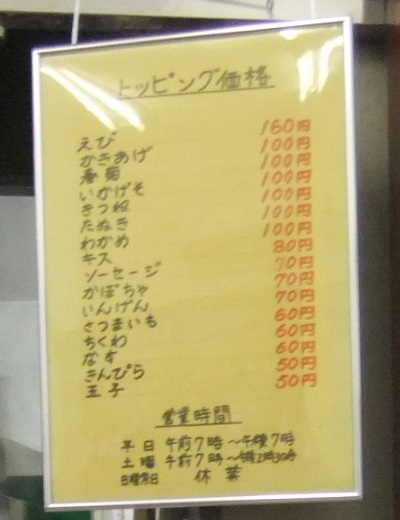 トッピング価格
えび 160円
かきあげ 100円
春菊 100円
いかげそ 100円
きつね 100円
たぬき 100円
わかめ 100円
キス 80円
ソーセージ 70円
かぼちゃ 70円
いんげん 70円
さつまいも 60円
ちくわ 60円
なす 60円
きんぴら 50円
玉子 50円
営業時間
平日 午前7時～午後7時
土曜 午前7時～午後2時30分
日曜祭日 休業